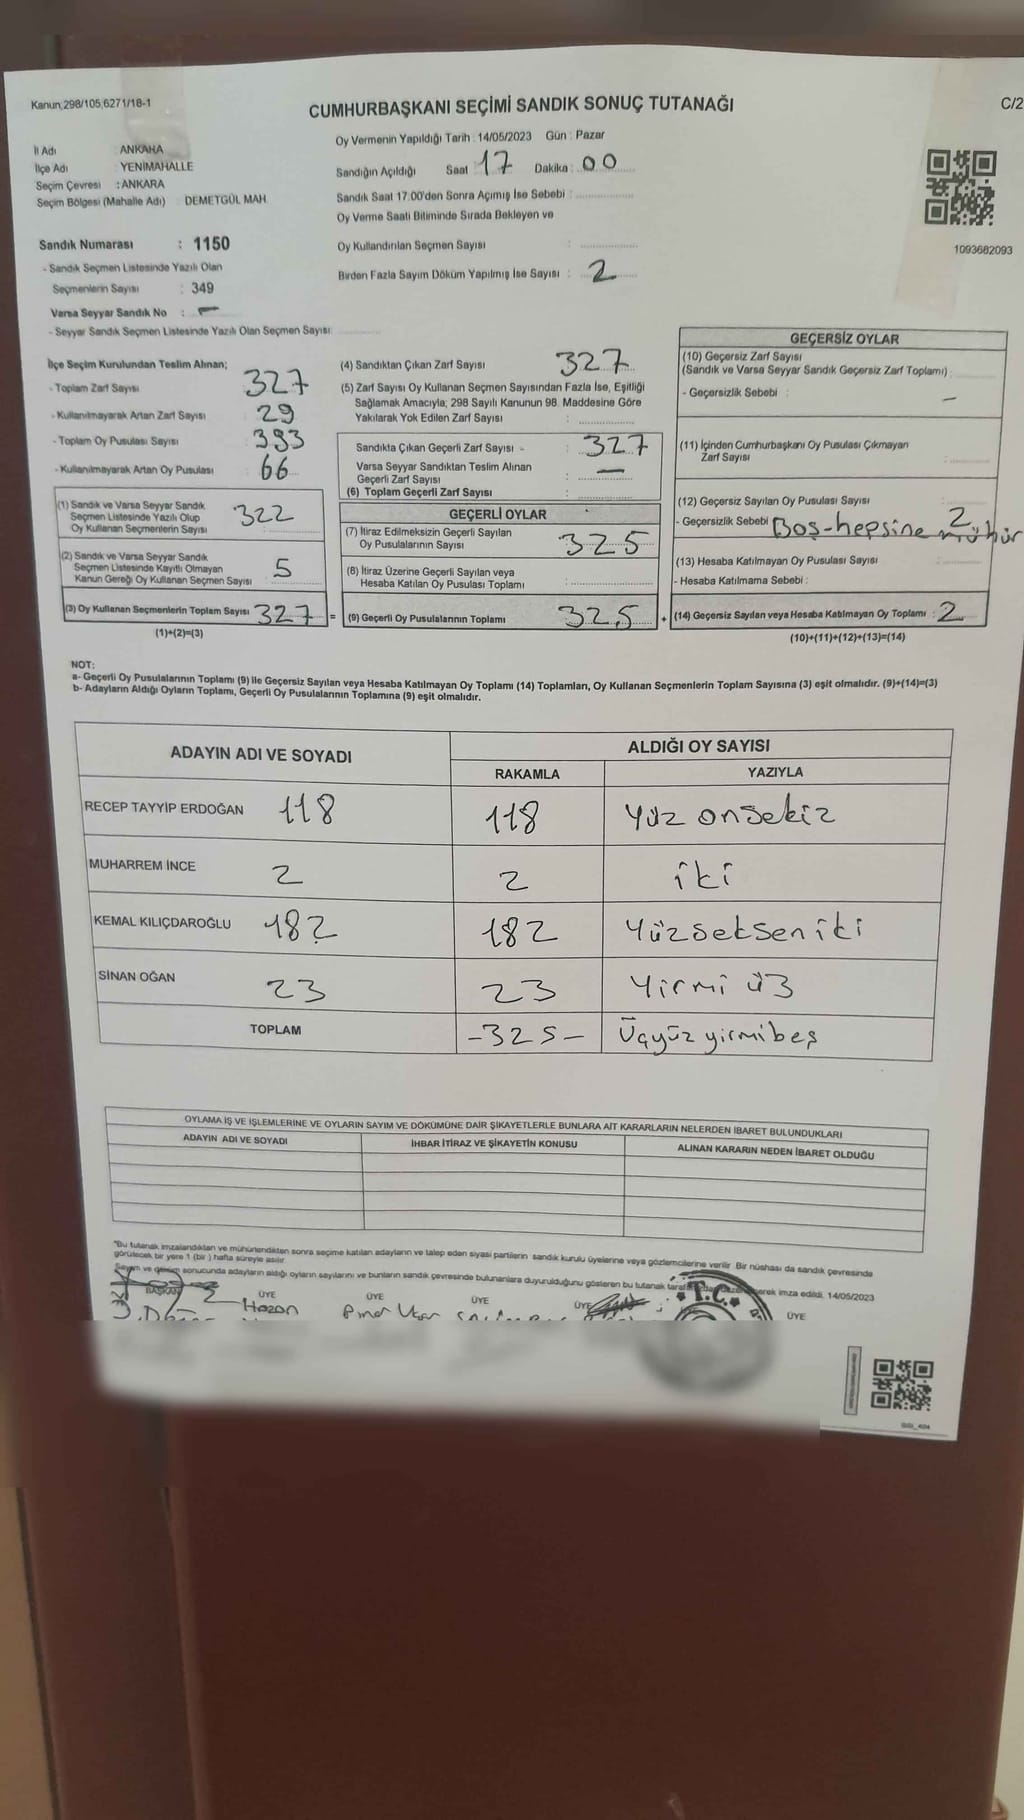 Kanun,298/105,6271/18-1
CUMHURBAŞKANI SEÇİMİ SANDIK SONUÇ TUTANAĞI
C/2
İl Adı : ANKARA
İlçe Adı : YENİMAHALLE
Seçim Çevresi : ANKARA
Seçim Bölgesi (Mahalle Adı) DEMETGÜL MAH.
Oy Vermenin Yapıldığı Tarih : 14/05/2023 Gün : Pazar
Sandığın Açıldığı Saat : 17 Dakika : 00
Sandık Saat 17.00'den Sonra Açımış İse Sebebi :
Oy Verme Saati Bitiminde Sırada Bekleyen ve
Oy Kullandırılan Seçmen Sayısı :
Birden Fazla Sayım Döküm Yapılmış İse Sayısı : 2
1093682093
Sandık Numarası : 1150
- Sandık Seçmen Listesinde Yazılı Olan
Seçmenlerin Sayısı : 349
Varsa Seyyar Sandık No : -
- Seyyar Sandık Seçmen Listesinde Yazılı Olan Seçmen Sayısı:
İlçe Seçim Kurulundan Teslim Alınan;
- Toplam Zarf Sayısı : 327
- Kullanılmayarak Artan Zarf Sayısı : 29
- Toplam Oy Pusulası Sayısı : 393
- Kullanılmayarak Artan Oy Pusulası : 66
(1) Sandık ve Varsa Seyyar Sandık
Seçmen Listesinde Yazılı Olup
Oy Kullanan Seçmenlerin Sayısı 322
(2) Sandık ve Varsa Seyyar Sandık
Seçmen Listesinde Kayıtlı Olmayan
Kanun Gereği Oy Kullanan Seçmen Sayısı 5
(3) Oy Kullanan Seçmenlerin Toplam Sayısı 327 =
(1)+(2)=(3)
(4) Sandıktan Çıkan Zarf Sayısı 327
(5) Zarf Sayısı Oy Kullanan Seçmen Sayısından Fazla İse, Eşitliği
Sağlamak Amacıyla; 298 Sayılı Kanunun 98. Maddesine Göre
Yakılarak Yok Edilen Zarf Sayısı :
Sandıkta Çıkan Geçerli Zarf Sayısı - : 327
Varsa Seyyar Sandıktan Teslim Alınan
Geçerli Zarf Sayısı : -
(6) Toplam Geçerli Zarf Sayısı :
GEÇERLİ OYLAR
(7) İtiraz Edilmeksizin Geçerli Sayılan
Oy Pusulalarının Sayısı 325
(8) İtiraz Üzerine Geçerli Sayılan veya
Hesaba Katılan Oy Pusulası Toplamı :
(9) Geçerli Oy Pusulalarının Toplamı 325 +
GEÇERSİZ OYLAR
(10) Geçersiz Zarf Sayısı
(Sandık ve Varsa Seyyar Sandık Geçersiz Zarf Toplamı) :
- Geçersizlik Sebebi : -
(11) İçinden Cumhurbaşkanı Oy Pusulası Çıkmayan
Zarf Sayısı :
(12) Geçersiz Sayılan Oy Pusulası Sayısı : 2
- Geçersizlik Sebebi Boş-hepsine mühür
(13) Hesaba Katılmayan Oy Pusulası Sayısı :
- Hesaba Katılmama Sebebi :
(14) Geçersiz Sayılan veya Hesaba Katılmayan Oy Toplamı : 2
(10)+(11)+(12)+(13)=(14)
NOT:
a- Geçerli Oy Pusulalarının Toplamı (9) ile Geçersiz Sayılan veya Hesaba Katılmayan Oy Toplamı (14) Toplamları, Oy Kullanan Seçmenlerin Toplam Sayısına (3) eşit olmalıdır. (9)+(14)=(3)
b- Adayların Aldığı Oyların Toplamı, Geçerli Oy Pusulalarının Toplamına (9) eşit olmalıdır.
ADAYIN ADI VE SOYADI ALDIĞI OY SAYISI
RAKAMLA YAZIYLA
RECEP TAYYİP ERDOĞAN 118 118 Yüz onsekiz
MUHARREM İNCE 2 2 iki
KEMAL KILIÇDAROĞLU 182 182 Yüzsekseniki
SİNAN OĞAN 23 23 Yirmi ü3
TOPLAM -325- Üçyüz yirmibeş
OYLAMA İŞ VE İŞLEMLERİNE VE OYLARIN SAYIM VE DÖKÜMÜNE DAİR ŞİKAYETLERLE BUNLARA AİT KARARLARIN NELERDEN İBARET BULUNDUKLARI
ADAYIN ADI VE SOYADI İHBAR İTİRAZ VE ŞİKAYETİN KONUSU ALINAN KARARIN NEDEN İBARET OLDUĞU
"Bu tutanak imzalandıktan ve mühürlendikten sonra seçime katılan adayların ve talep eden siyasi partilerin sandık kurulu üyelerine veya gözlemcilerine verilir. Bir nüshası da sandık çevresinde
görülecek bir yere 1 (bir) hafta süreyle asılır.
Sayım ve döküm sonucunda adayların aldığı oyların sayılarını ve bunların sandık çevresinde bulunanlara duyurulduğunu gösteren bu tutanak imza edildi. 14/05/2023
BAŞKAN ÜYE ÜYE ÜYE ÜYE ÜYE
Hazan
T.C.